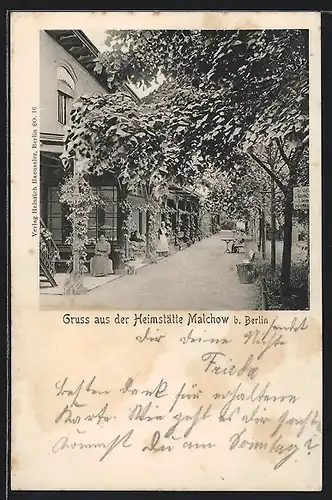 Verlag Heinrich Haeussler, Berlin SO. 16
Gruss aus der Heimstätte Malchow b. Berlin
Dir deine Nichte sendet
Frieda
besten Dank für erhaltene
Karte. Wie geht es dir
kommst du am Sonntag?